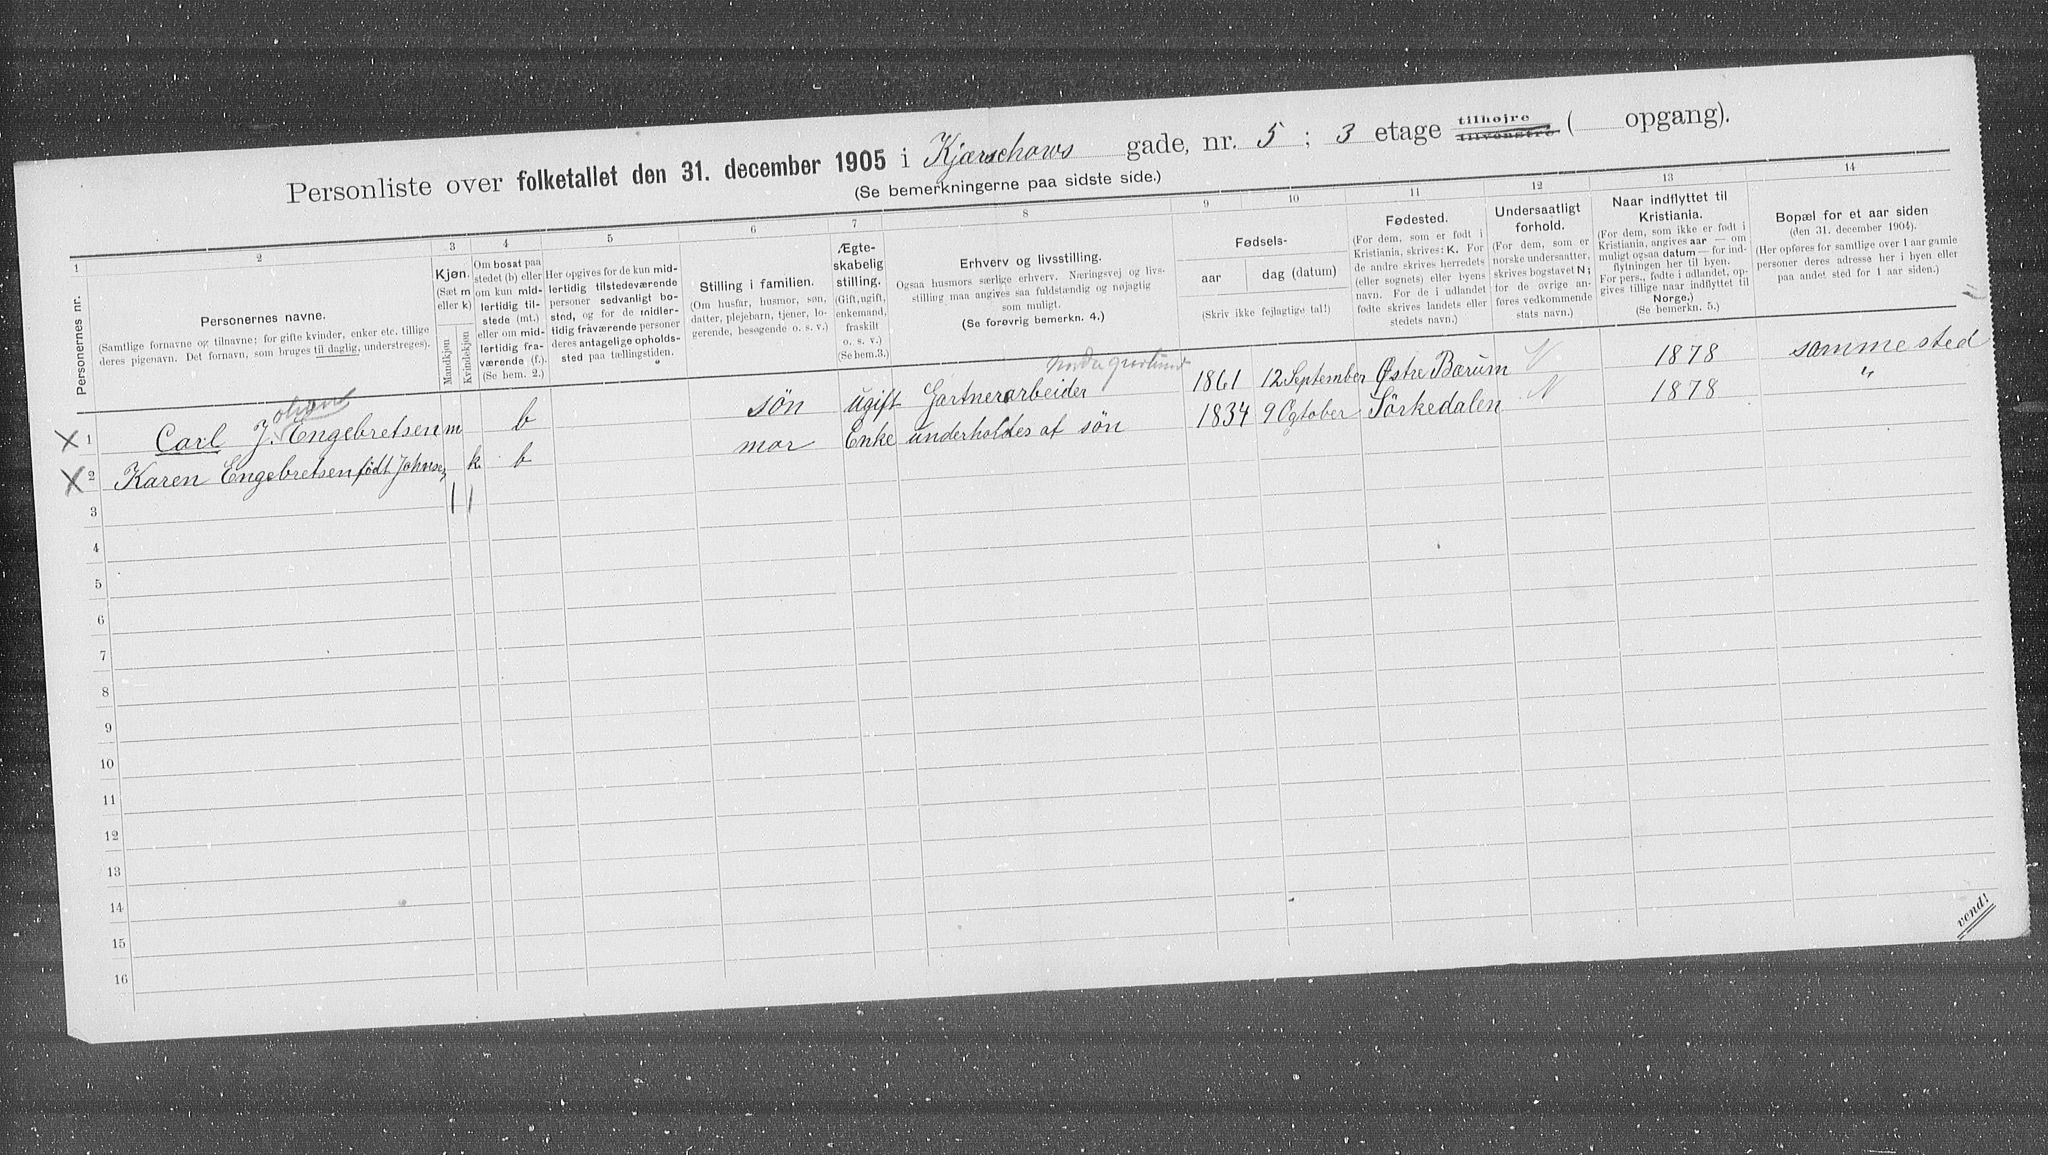 Personliste over folketallet den 31. december 1905 i Kjærschows gade, nr. 5 ; 3 etage tilhøjre tilvenstre ( opgang).
(Se bemerkningerne paa sidste side.)
1 2 3 4 5 6 7 8 9 10 11 12 13 14
Personernes nr.
Personernes navne.
(Samtlige fornavne og tilnavne; for gifte kvinder, enker etc. tillige
deres pigenavn. Det fornavn, som bruges til daglig, understreges).
Kjøn.
(Sæt m
eller k)
Mandkjøn
Kvindekjøn
Om bosat paa
stedet (b) eller
om kun mid-
lertidig til-
stede (mt.)
eller om mid-
lertidig fra-
værende (f.).
(Se bem. 2.)
Her opgives for de kun mid-
lertidig tilstedeværende
personer sedvanlig bo-
sted, og for de midler-
tidig fraværende personer
deres antagelige opholds-
sted paa tællingstiden.
Stilling i familien.
(Om husfar, husmor, søn,
datter, plejebarn, tjener, lo-
gerende, besøgende o. s. v.)
Ægte-
skabelig
stilling.
(Gift, ugift,
enkemand,
fraskilt
o. s. v.)
(Se bem.3.)
Erhverv og livsstilling.
Ogsaa husmors særlige erhverv. Næringsvej og livs-
stilling maa angives saa fuldstændig og nøjagtig
som muligt.
(Se forøvrig bemerkn. 4.)
Fødsels-
aar
dag (datum)
(Skriv ikke fejlagtige tal!)
Fødested.
(For dem, som er født i
Kristiania, skrives: K. For
de andre skrives herredets
(eller sognets) eller byens
navn. For de i udlandet
fødte skrives landets eller
stedets navn.)
Undersaatligt
forhold.
(For dem, som er
norske undersaatter,
skrives bogstavet N;
for de øvrige an-
føres vedkommende
stats navn.)
Naar indflyttet til
Kristiania.
(For dem, som ikke er født i
Kristiania, angives aar — om
muligt ogsaa datum — for ind-
flytningen her til byen.
For pers., fødte i udlandet, op-
gives tillige naar indflyttet til
Norge.)
(Se bemerkn. 5.)
Bopæl for et aar siden
(den 31. december 1904).
(Her opføres for samtlige over 1 aar gamle
personer deres adresse her i byen eller
paa andet sted for 1 aar siden.)
ohan
1 Carl J. Engebretsen m b søn ugift Gartnerarbeider 1861 12 September Østre Bærum N 1878 samme sted
2 Karen Engebretsen født Johnsen k. b mor Enke underholdes af søn 1834 9 Ogtober Sörkedalen N 1878 "
3
4
5
6
7
8
9
10
11
12
13
14
15
16
vend!